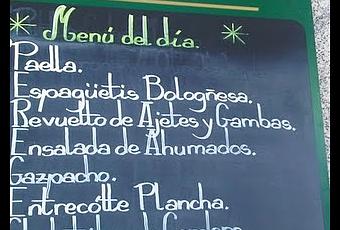 Menú del día.
Paella.
Espagüetis Bologñesa.
Revuelto de Ajetes y Gambas.
Ensalada de Ahumados.
Gazpacho.
Entrecótte Plancha.